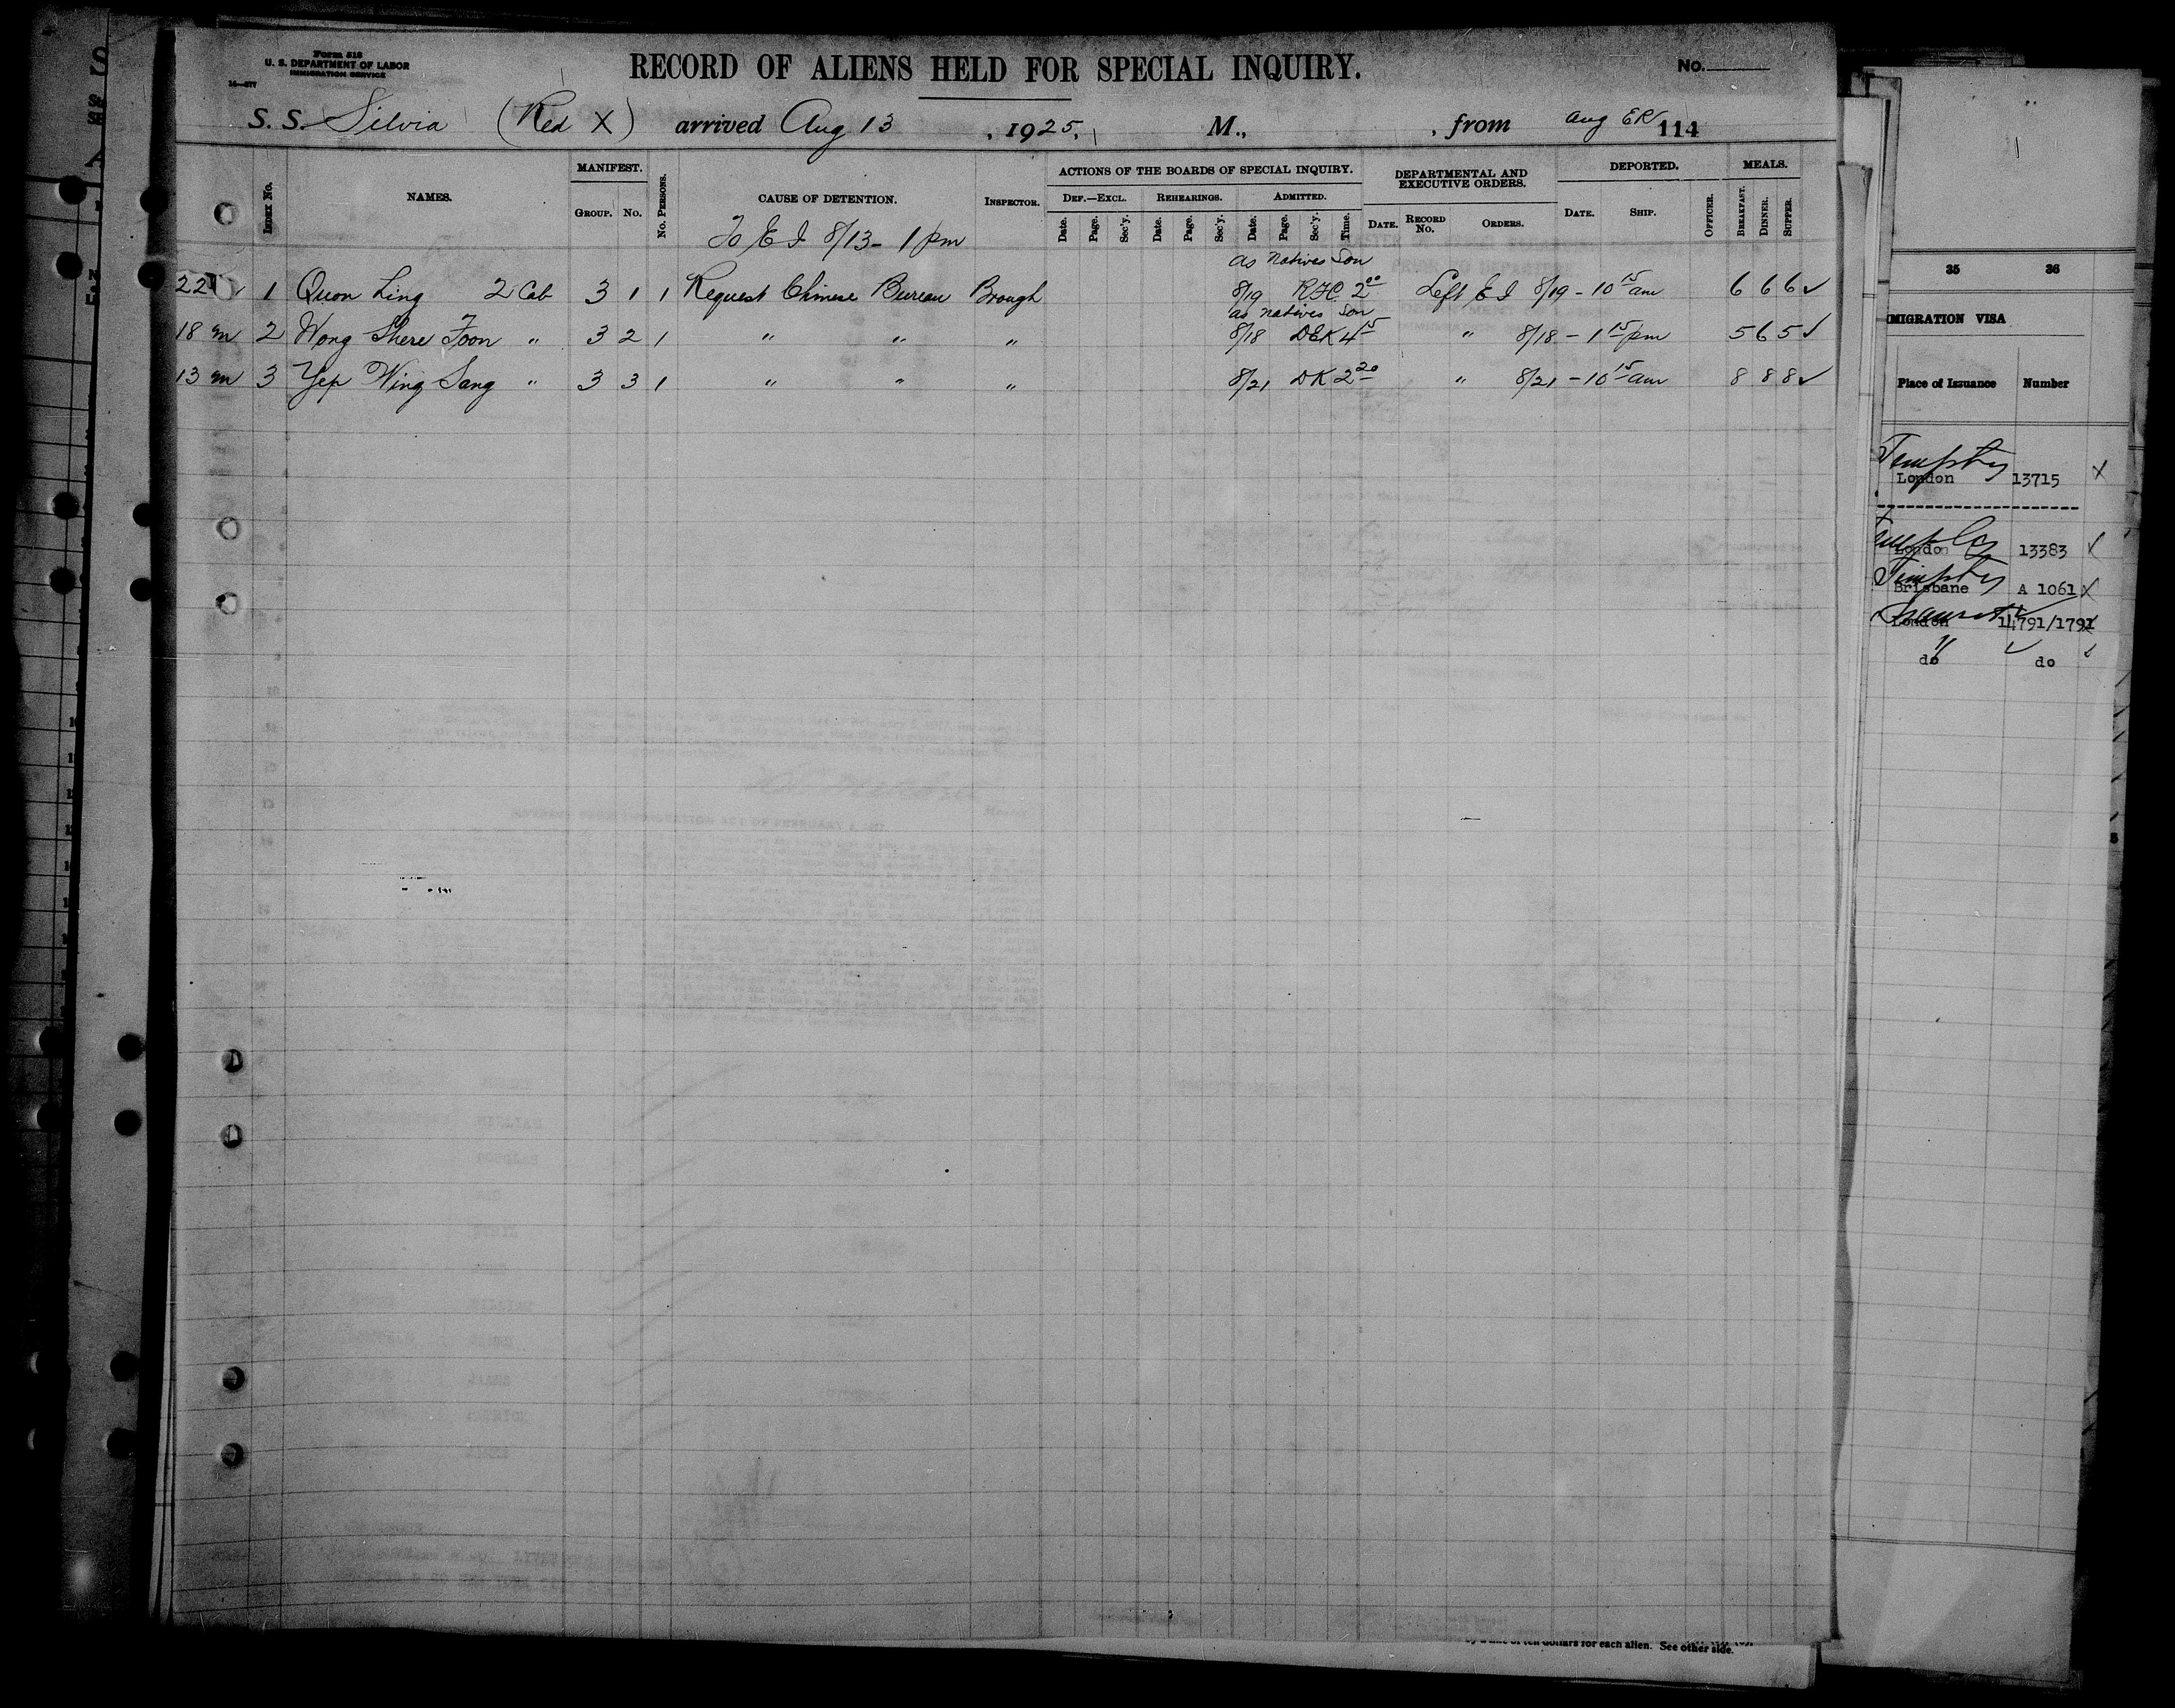 Form 518
U. S. DEPARTMENT OF LABOR
IMMIGRATION SERVICE
14—577
RECORD OF ALIENS HELD FOR SPECIAL INQUIRY.
No.
S. S. Silvia (Red X) arrived Aug 13, 1925, M., , from Aug ER 114
INDEX No. NAMES. MANIFEST. GROUP. No. No. PERSONS. CAUSE OF DETENTION. INSPECTOR. ACTIONS OF THE BOARDS OF SPECIAL INQUIRY. DEF.—EXCL. REHEARINGS. ADMITTED. DEPARTMENTAL AND EXECUTIVE ORDERS. DEPORTED. MEALS.
Date. Page. Sec'y. Date. Page. Sec'y. Date. Page. Sec'y. Time. DATE. RECORD No. ORDERS. DATE. SHIP. OFFICER. BREAKFAST. DINNER. SUPPER.
To E I 8/13 - 1 pm
as natives son
22 1 Quon Ling 2 Cab 3 1 1 Request Chinese Bureau Brough 8/19 RJC 2 00 Left E I 8/19 - 10 15 am 6 6 6 ✓
as natives son
18 m 2 Wong Shere Foon " 3 2 1 " " " 8/18 DEK 4 15 " 8/18 - 1 15 pm 5 6 5 ✓
13 m 3 Yep Wing Sang " 3 3 1 " " " 8/21 DK 2 20 " 8/21 - 10 15 am 8 8 8 ✓
35 36
MIGRATION VISA
Place of Issuance Number
London 13715 X
London 13383
Brisbane A 1061 X
London 14791/1791
do do
for each alien. See other side.